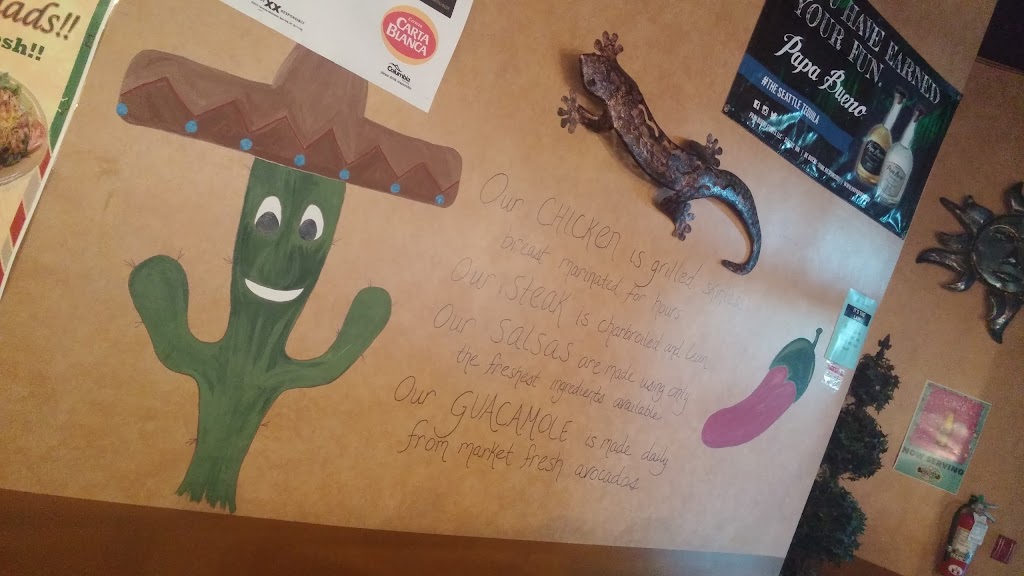 ads!!
sh!!
XX
CARTA
BLANCA
Columbia
YOU HAVE EARNED
YOUR FUN.
Papa Bueno
#THE SEATTLE TEQUILA
Our CHICKEN is grilled, skinless
breast marinated for hours
Our Steak is charbroiled and lean
Our SALSAS are made using only
the freshest ingredients available
Our GUACAMOLE is made daily
from market fresh avocados
NOW SERVING